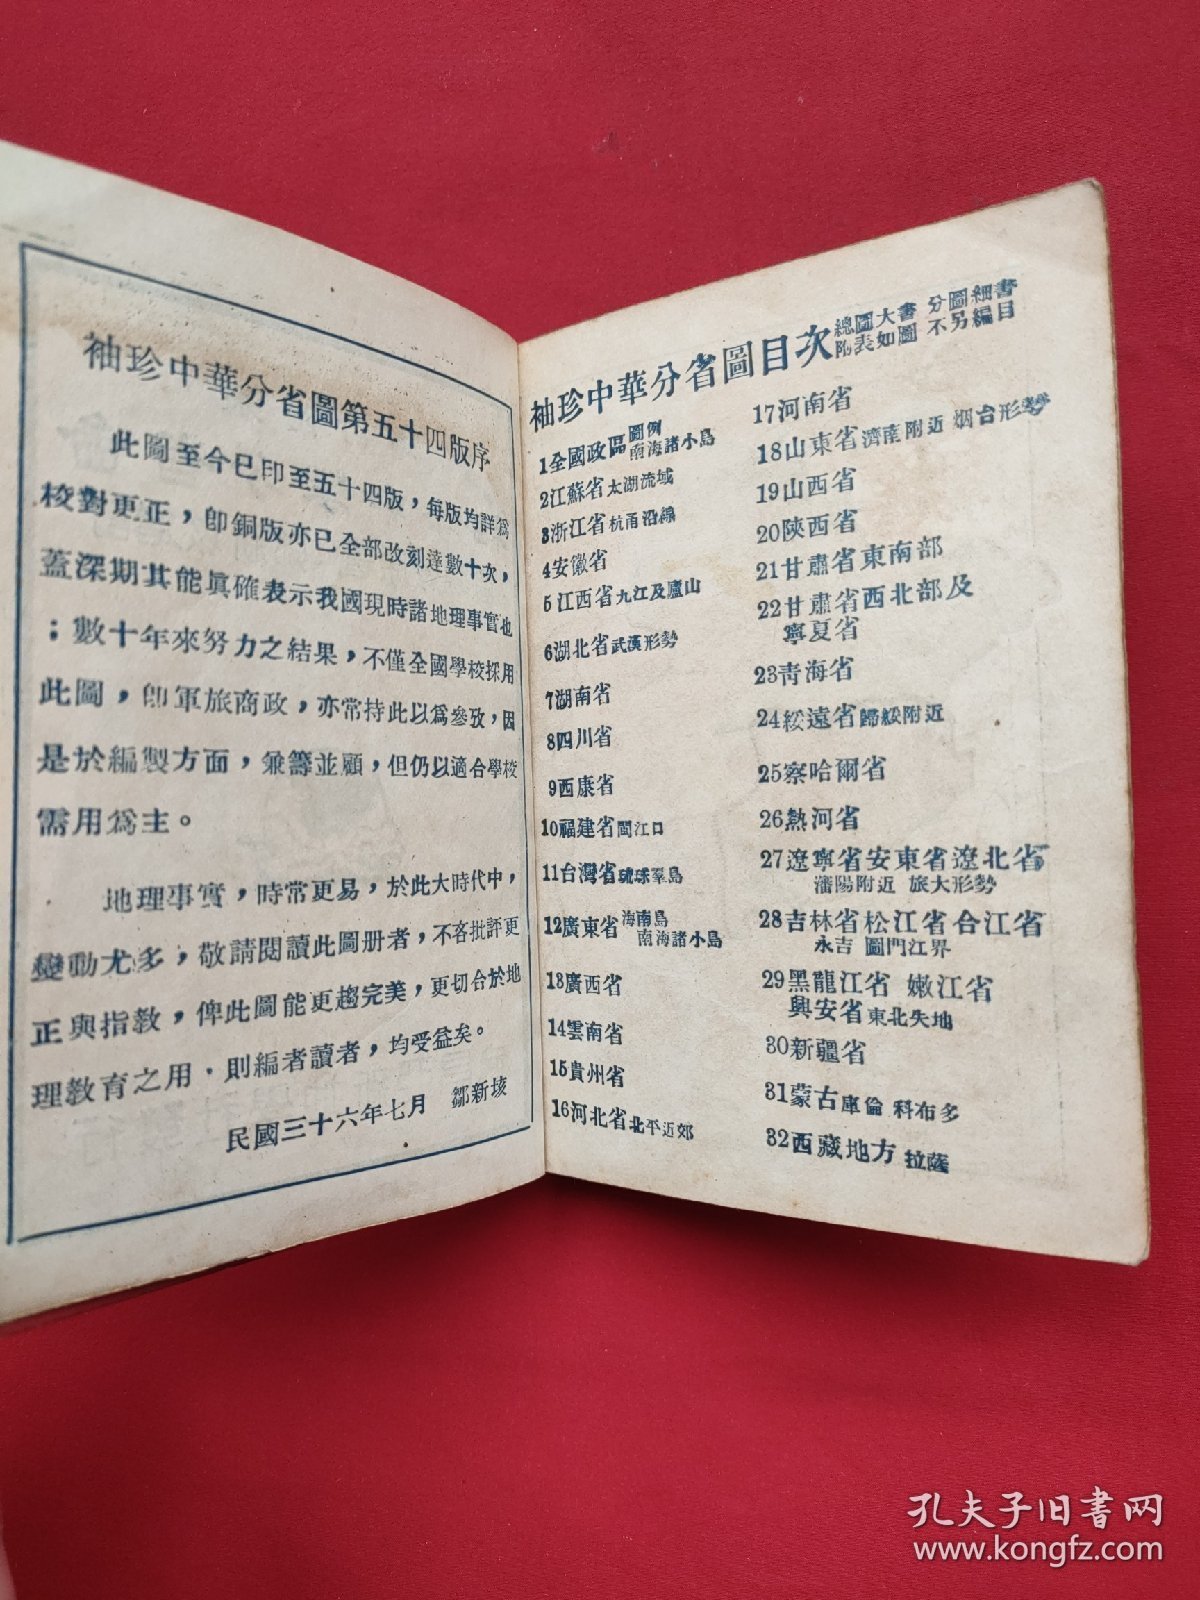 袖珍中華分省圖第五十四版序
此圖至今已印至五十四版，每版均詳爲
校對更正，卽銅版亦已全部改刻達數十次，
蓋深期其能眞確表示我國現時諸地理事實也
；數十年來努力之結果，不僅全國學校採用
此圖，卽軍旅商政，亦常持此以爲參攷，因
是於編製方面，兼籌並顧，但仍以適合學校
需用爲主。
地理事實，時常更易，於此大時代中，
變動尤多，敬請閱讀此圖册者，不吝批評更
正與指敎，俾此圖能更趨完美，更切合於地
理敎育之用．則編者讀者，均受益矣。
民國三十六年七月 鄒新垓
袖珍中華分省圖目次
總圖大書 分圖細書
附表如圖 不另編目
1全國政區 圖例 南海諸小島
2江蘇省 太湖流域
3浙江省 杭甬沿線
4安徽省
5江西省 九江及廬山
6湖北省 武漢形勢
7湖南省
8四川省
9西康省
10福建省 閩江口
11台灣省 琉球羣島
12廣東省 海南島 南海諸小島
13廣西省
14雲南省
15貴州省
16河北省 北平近郊
17河南省
18山東省 濟南附近 烟台形勢
19山西省
20陝西省
21甘肅省東南部
22甘肅省西北部及
寧夏省
23靑海省
24綏遠省 歸綏附近
25察哈爾省
26熱河省
27遼寧省安東省遼北省
瀋陽附近 旅大形勢
28吉林省松江省合江省
永吉 圖門江界
29黑龍江省 嫩江省
興安省 東北失地
30新疆省
31蒙古 庫倫 科布多
32西藏地方 拉薩
孔夫子旧书网
www.kongfz.com